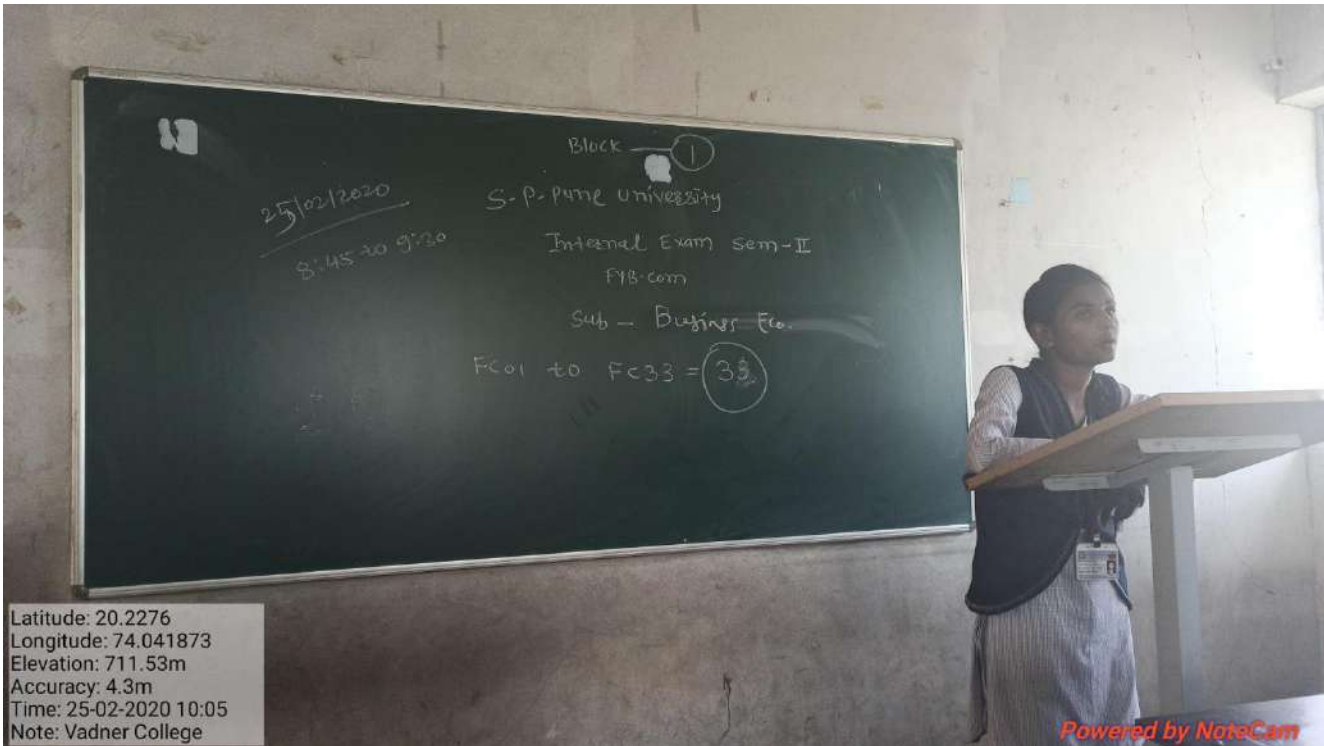 Block — 1
25/02/2020
S.P. Pune University
8:45 to 9:30
Internal Exam Sem-II
FYB.com
Sub - Business Eco.
FC01 to FC33 = 33
Latitude: 20.2276
Longitude: 74.041873
Elevation: 711.53m
Accuracy: 4.3m
Time: 25-02-2020 10:05
Note: Vadner College
Powered by NoteCam